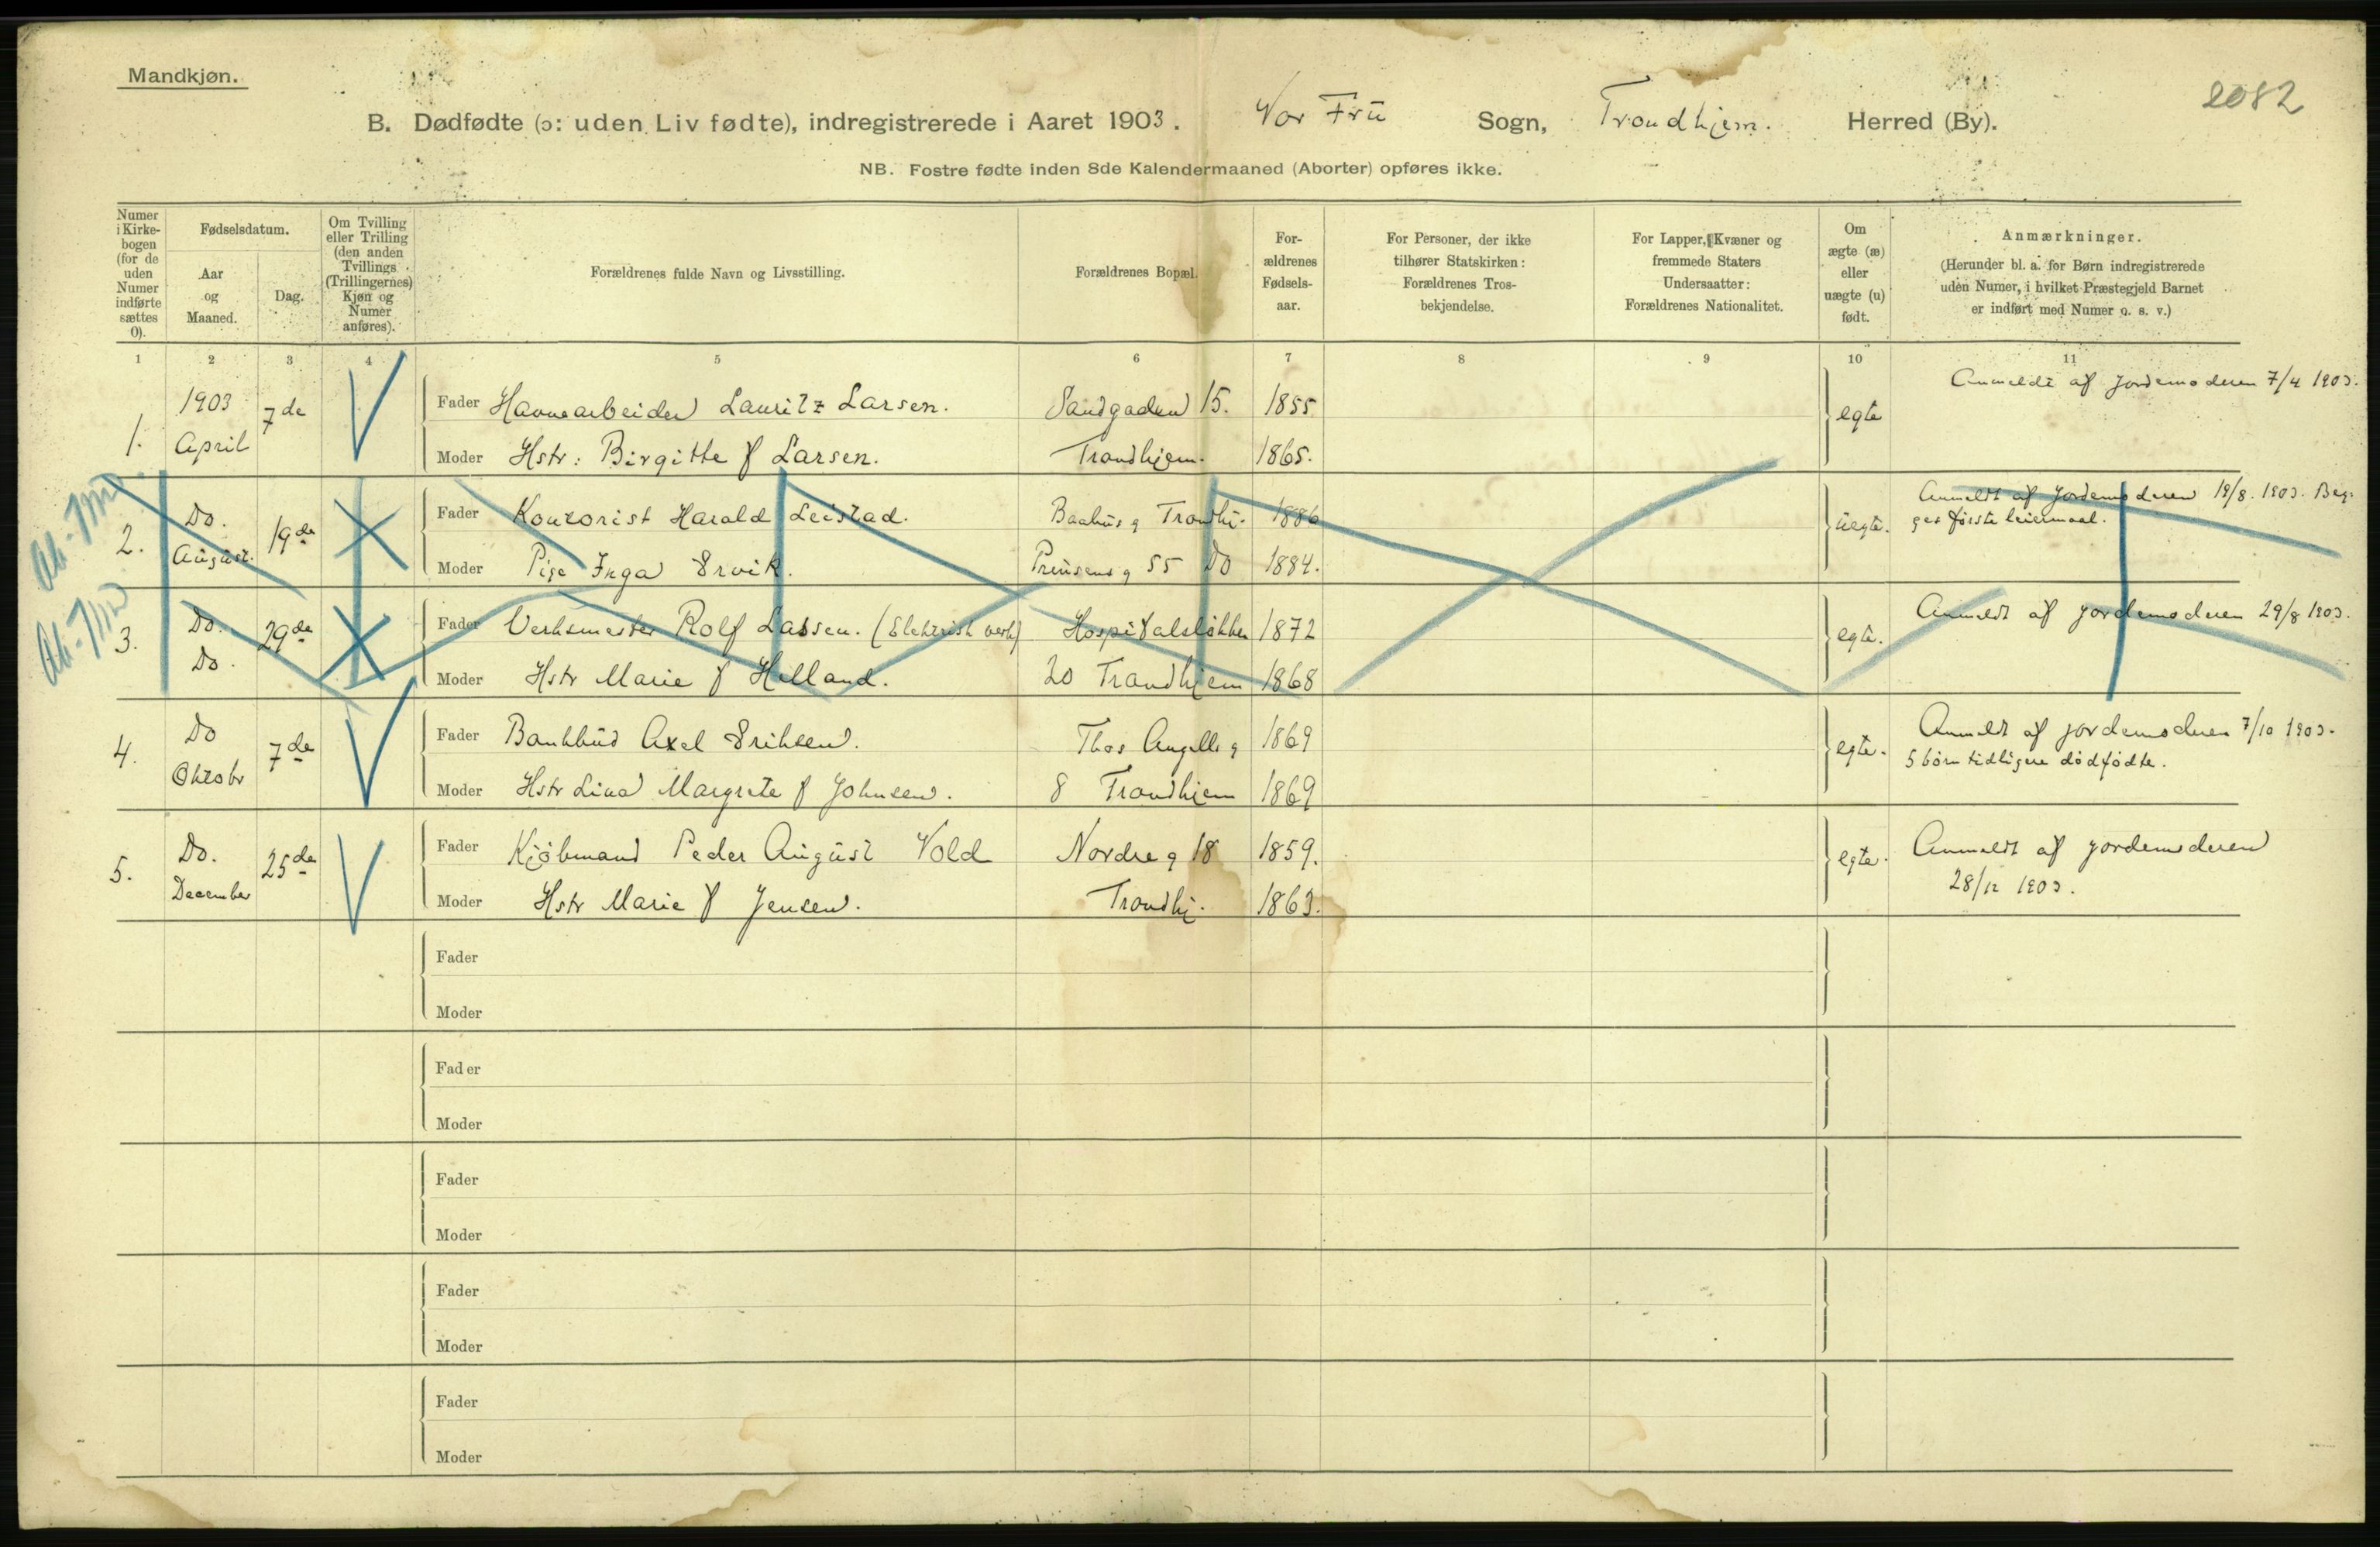 Mandkjøn.
2082
B. Dødfødte (ɔ: uden Liv fødte), indregistrerede i Aaret 1903. Vor Frü Sogn, Trondhjem. Herred (By).
NB. Fostre fødte inden 8de Kalendermaaned (Aborter) opføres ikke.
Numer i Kirke-bogen (for de uden Numer indførte sættes 0).
Fødselsdatum.
Aar og Maaned.
Dag.
Om Tvilling eller Trilling (den anden Tvillings (Trillingernes) Kjøn og Numer anføres).
Forældrenes fulde Navn og Livsstilling.
Forældrenes Bopæl.
For-ældrenes Fødsels-aar.
For Personer, der ikke tilhører Statskirken: Forældrenes Tros-bekjendelse.
For Lapper, Kvæner og fremmede Staters Undersaatter: Forældrenes Nationalitet.
Om ægte (æ) eller uægte (u) født.
Anmærkninger.
(Herunder bl. a. for Børn indregistrerede uden Numer, i hvilket Præstegjeld Barnet er indført med Numer o. s. v.)
1 2 3 4 5 6 7 8 9 10 11
1. 1903 April 7de
Fader Havnearbeider Lauritz Larsen. Sandgaden 15. 1855
Moder Hstr: Birgitte f Larsen. Trondhjem. 1865.
egte
Anmeldt af Jordemoderen 7/4 1903.
2. Do. August. 19de
Fader Kontorist Harald Leistad. Baahus g Trondhj. 1886
Moder Pige Inga Ervik. Prinsens g 55 Do 1884.
üegte.
Anmeldt af Jordemoderen 19/8. 1903. Beg-
ges første leiermaal.
3. Do. Do. 29de
Fader Verksmester Rolf Lassen. (Elektrisk verk) Hospitalsløkken 1872
Moder Hstr Marie f Helland. 20 Trondhjem 1868
egte.
Anmeldt af jordemoderen 29/8 1903.
4. Do Oktobr 7de
Fader Bankbud Axel Eriksen. Thos Angells g 1869
Moder Hstr Lina Margrete f Johnsen. 8 Trondhjem 1869
egte.
Anmeldt af jordemoderen 7/10 1903.
5 børn tidligere dødfødte.
5. Do. December 25de
Fader Kjøbmand Peder August Vold Nordre g 18 1859.
Moder Hstr Marie f Jensen. Trondhj. 1863.
egte.
Anmeldt af jordemoderen
28/12 1903.
Fader
Moder
Fader
Moder
Fader
Moder
Fader
Moder
Fader
Moder